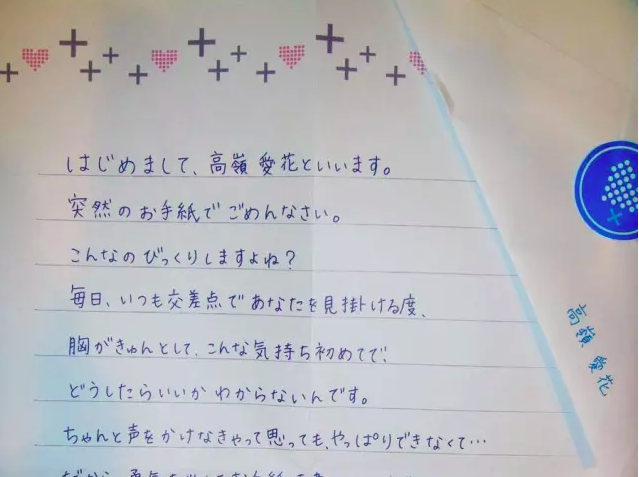 はじめまして、高嶺 愛花といいます。
突然のお手紙でごめんなさい。
こんなのびっくりしますよね？
毎日、いつも交差点であなたを見掛ける度、
胸がきゅんとして、こんな気持ち初めてで、
どうしたらいいかわからないんです。
ちゃんと声をかけなきゃって思っても、やっぱりできなくて…
高嶺 愛花